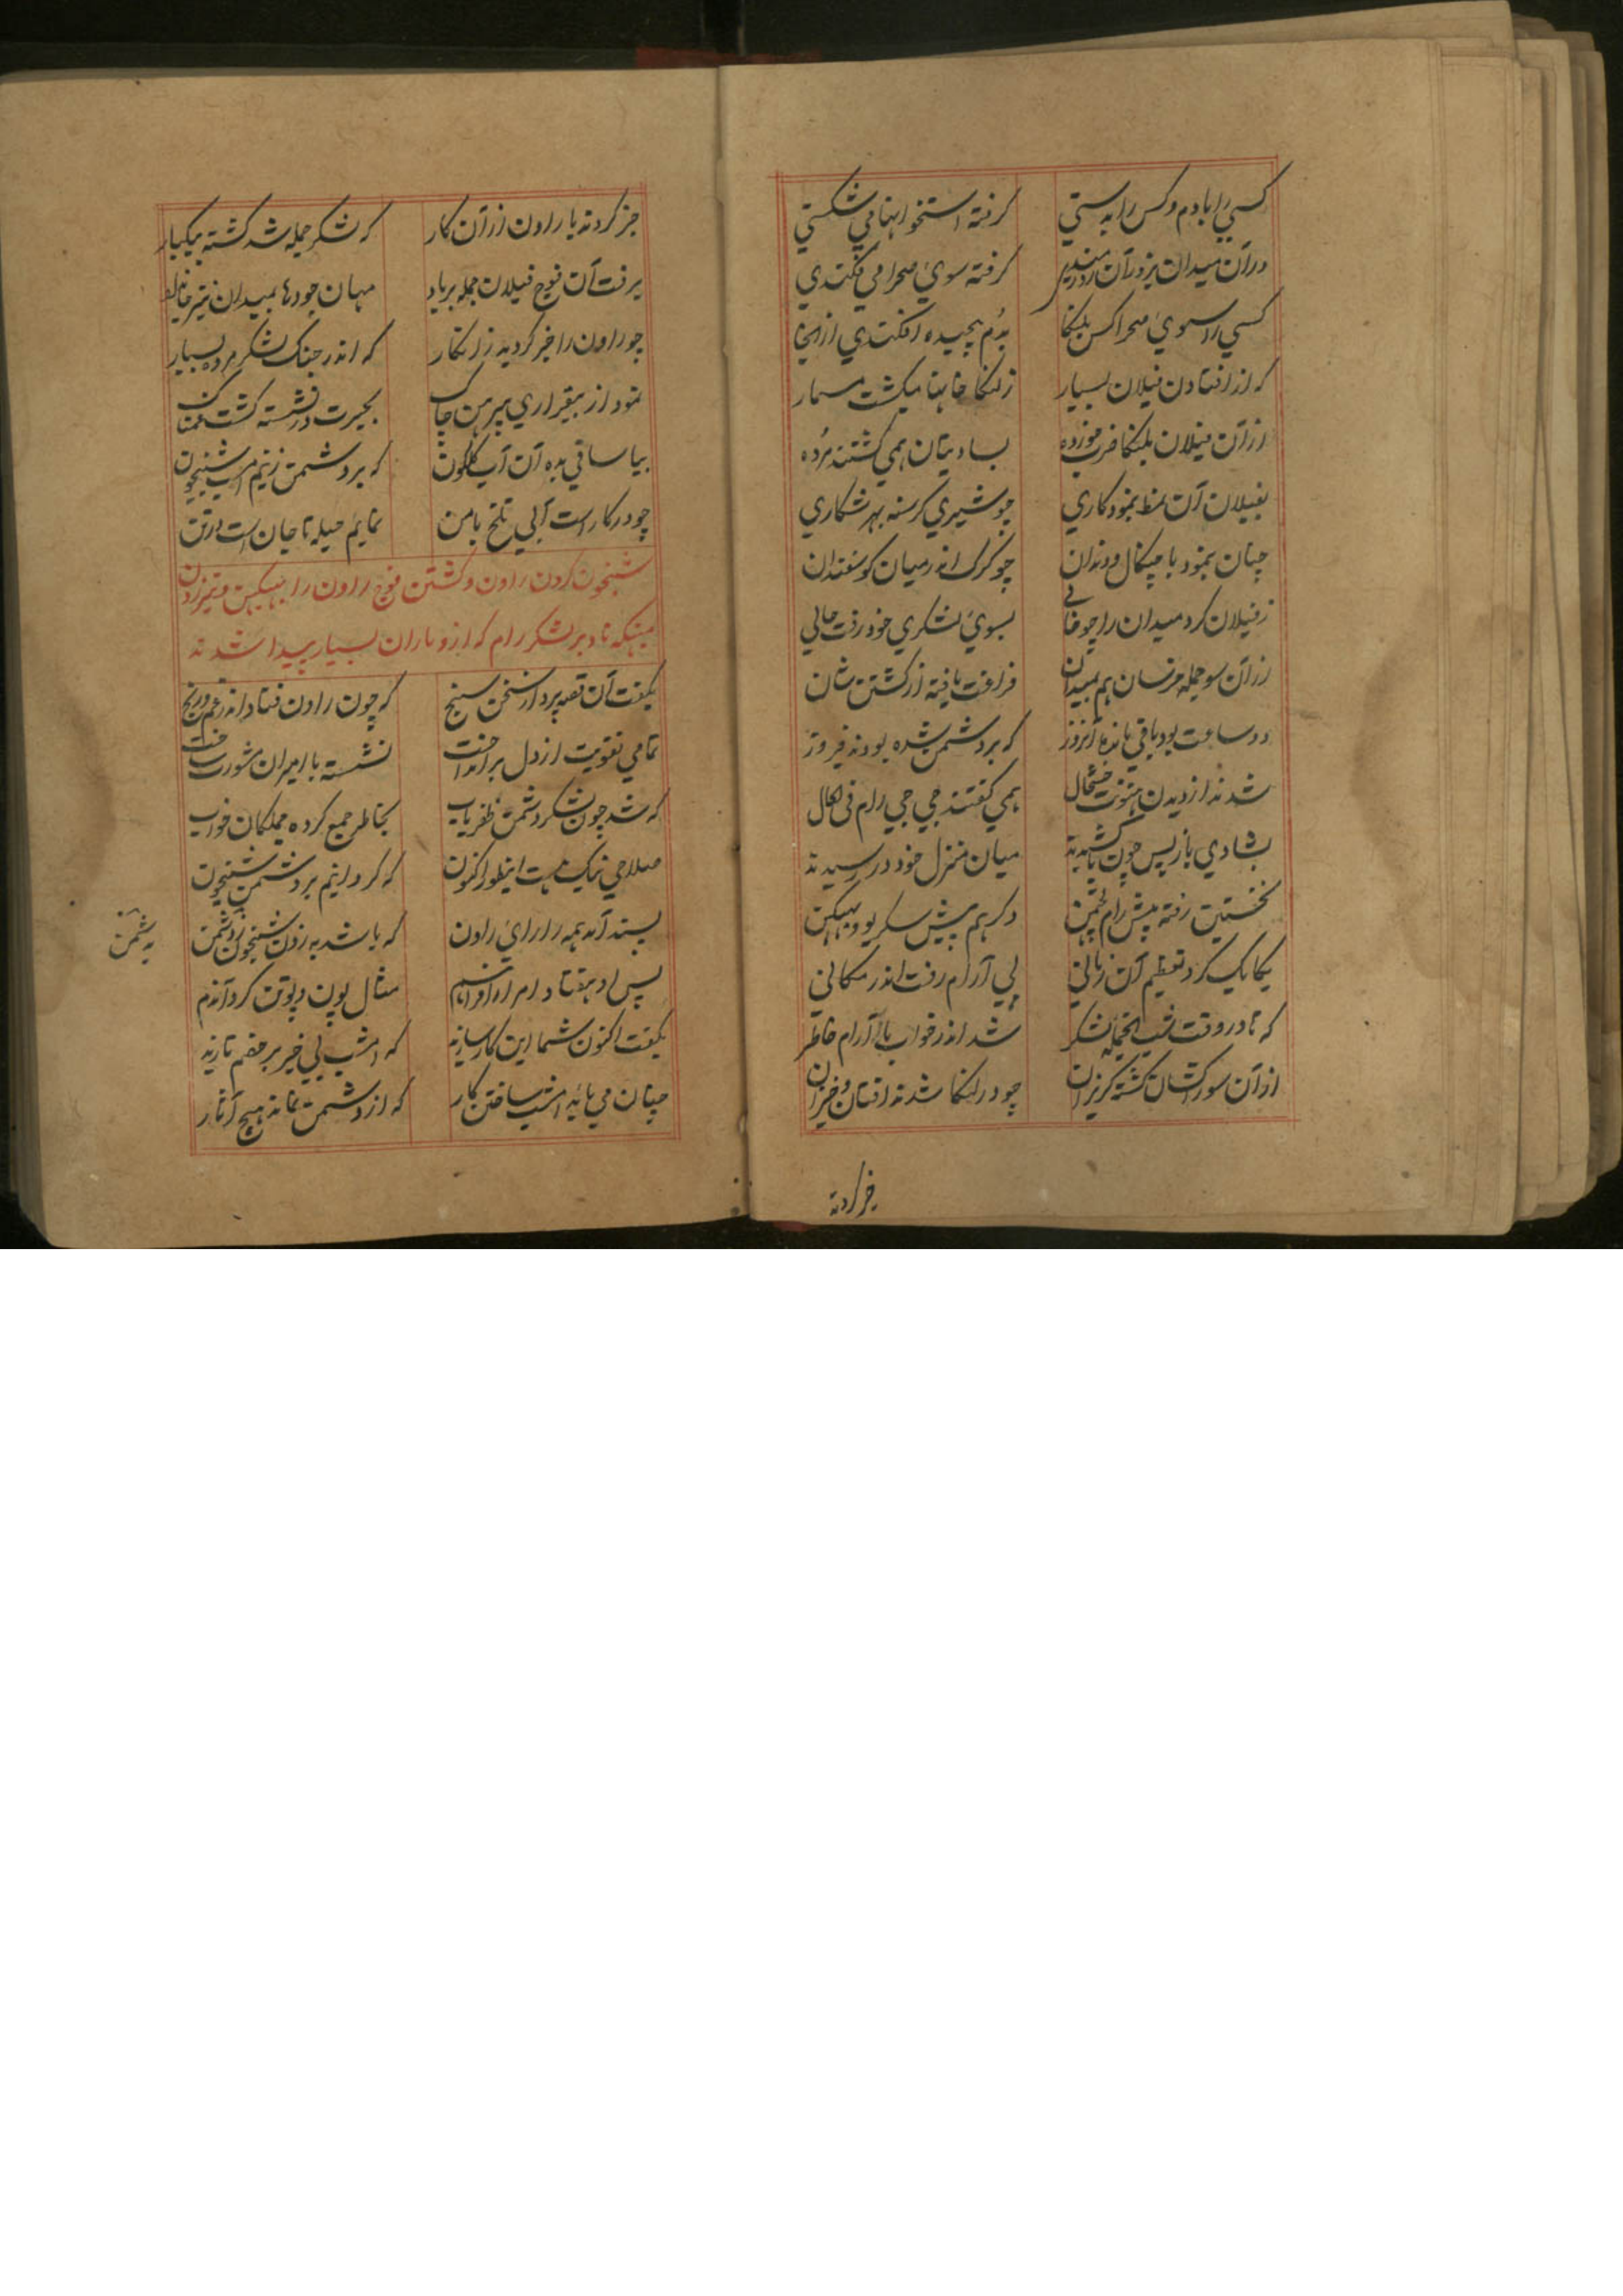 کسی را بادم و کس را به دستی گرفته استخوانها می شکستی
در آن میدان بزور آن گرفته سوی صحرا می فکندی
کسی را سوی صحرا کس بلنکا بدم پیچیده افکندی از انجا
که از افتادن فیلان بسیار ز لنکا خانها میکشت مسمار
از آن فیلان بلنکا ضرب خورده بسا دیتان همی کشتند مرده
بفیلان آن نمط بنمود کاری چو شیری کرسنه بهر شکاری
چنان بنمود با چنکال و دندان چو کرک اندر میان کوسفندان
ز فیلان کرد میدان را چو خالی بسوی لشکری خود رفت حالی
از آن سو جمله خرسان هم بمیدان فراغت یافته از کشتن شان
دو ساعت بود باقی مانده آنروز که بر دشمن شده بودند فیروز
شدند از دیدن هنونت خوشحال همی کفتند جی جی رام فی الحال
بشادی باز پس چون میان منزل خود در رسیدند
نخستین رفته پیش رام لچمن دکر هم پیش سکریو و ببیکن
یکایک کرد تعظیم آن زمانی پی آرام رفت اندر مکانی
که تا در وقت شب لشکر شد اندر خواب با آرام خاطر
از آن سو راکشان کشته کریزان چو در لنکا شدند افتان و خیزان
خبر کردند
خبر کردند با راون از آن کار که لشکر جمله شد کشته بیکبار
برفت آن فوج فیلان جمله برباد مهان جودها بمیدان نیز
چو راون را خبر کردند زانکار که اندر جنک لشکر مرده بسیار
نمود از بیقراری پیرهن چاک بحیرت در نشسته کشت غمناک
بیا ساقی بده آن آب کلکون که بر دشمن زنیم امشب شبیخون
چو در کار است آبی تلخ با من نمایم حیله تا جان است در تن
شبیخون کردن راون و کشتن فوج راون را ببیکین و تیر زدن
میکهناد بر لشکر رام که ازو باران بسیار پیدا شدند
بکفت آن قصه پرداز سخن سنج که چون راون فتاد اندر غم و رنج
تمامی تقویت از دل برانداخت نشسته با امیران مشورت ساخت
که شد چون لشکر دشمن ظفریاب بخاطر جمع کرده جملکان خواب
صلاحی نیک هست اینطور اکنون که کردانیم بر دشمن شبیخون
پسند آمد همه را رای راون که باشد به زدن شبیخون بر دشمن
به دشمن
پس او هفتاد امرا را مثال پون و پوتن کرد آندم
بکفت اکنون شما این کار سازند که امشب بی خبر بر خصم تازند
چنان می باید امشب ساختن کار که از دشمن نماند هیچ آثار